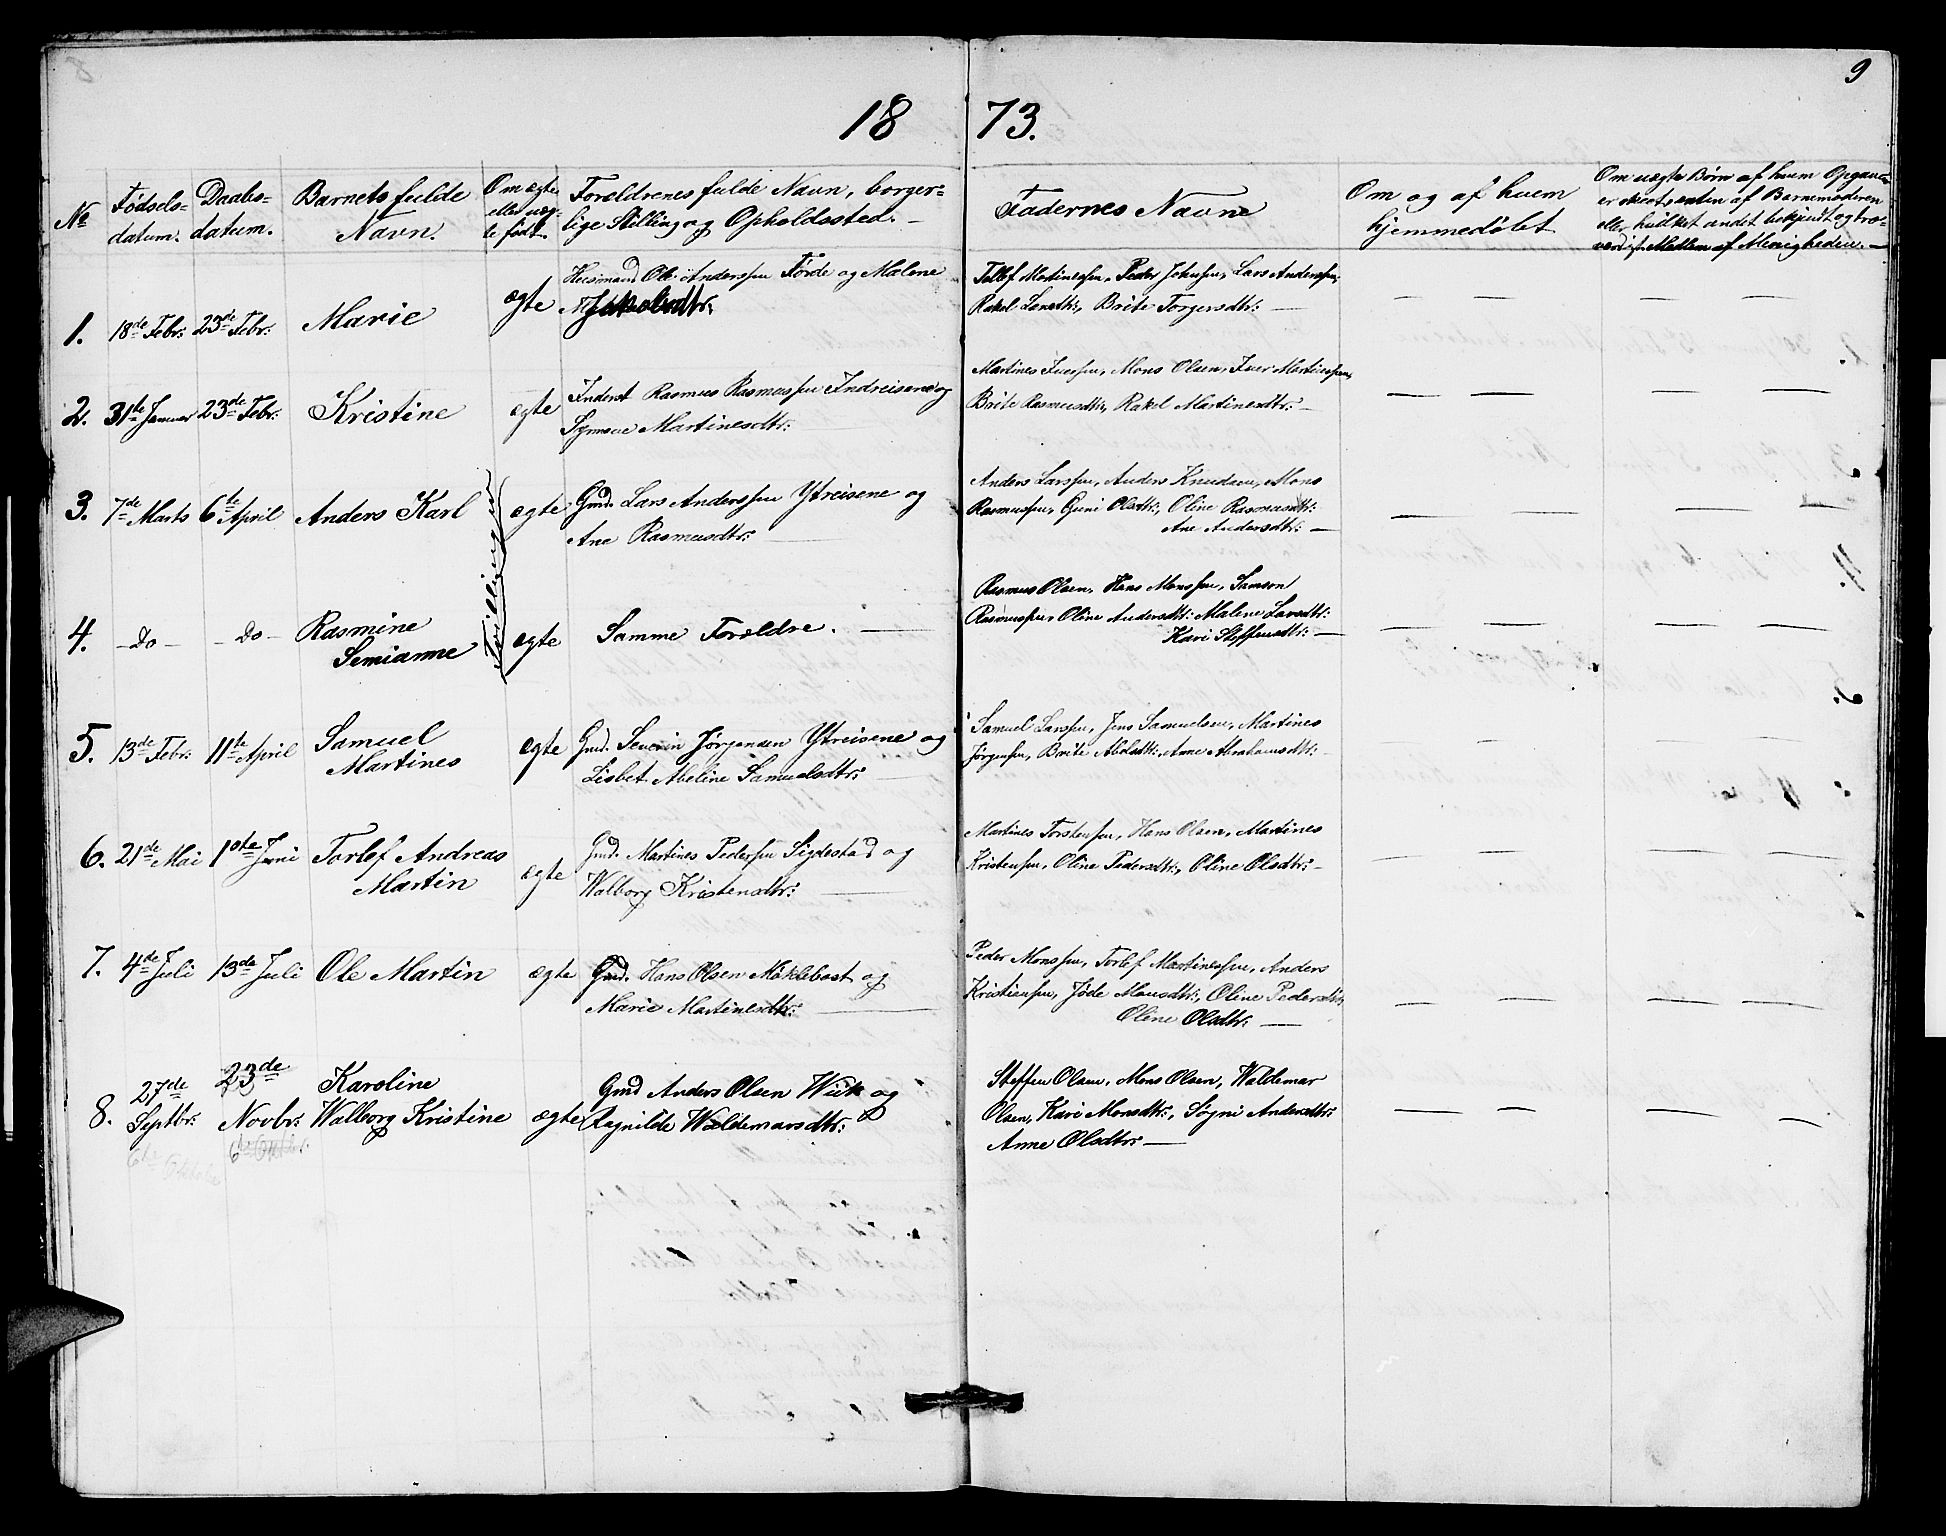 9
18 73.
No Fødsels- datum. Daabs- datum. Barnets fulde Navn. Om ægte eller uæg- te født. Forældrenes fulde Navn, borger- lige Stilling og Opholdssted. Faderness Navne Om og af hvem hjemmedøbt
Om uægte Børn af hvem Opgave er skeet, enten af Barnemoderen eller hvilket andet bekjendt og tro- værdigt Medlem af Menigheden.
1. 18de Febr: 23de Febr: Marie ægte Huusmand Ole Anderssen Førde og Malene
Jakobsdtr.
Tollef Martinessen, Peder Johnsen, Lars Anderssen,
Rakel Larsdtr:, Brite Torgersdtr: —
2. 31te Januar 23de Febr: Kristine ægte Inderst Rasmus Rasmussen Indreisene og
Synneve Martinesdtr:
Martines Iverssen, Mons Olsen, Iver Martinessen,
Brite Rasmusdtr:, Rakel Martinesdtr: —
3. 7de Marts 6te April Anders Karl ægte Gmd. Lars Anderssen Ytreisene og
Ane Rasmusdtr:
Anders Larssen, Anders Knudsen, Mons
Rasmussen, Guni Olsdtr:, Oline Rasmusdtr:
Ane Andersdtr: —
Tvillinger
4. — Do — — Do — Rasmine
Semianne ægte Samme Forældre. —
Rasmus Olsen, Hans Monssen, Samson
Rasmussen, Oline Andersdtr: Malene Larsdtr:
Kari Steffensdtr: —
5. 13de Febr: 11te April Samuel
Martines ægte Gmd. Severin Jørgensen Ytreisene og
Lisbet Abeline Samuelsdtr:
Samuel Larssen, Jens Samuelsen, Martines
Jørgensen, Brite Abelsdtr:, Anne Abrahamsdtr:
6. 21de Mai 1ste Juni Torlef Andreas
Martin ægte Gmd. Martines Pederssen Sigdestad og
Walborg Kristensdtr:
Martines Torstenssen, Hans Olsen, Martines
Kristenssen, Oline Pedersdtr:, Oline Olsdtr: —
7. 4de Juli 13de Juli Ole Martin ægte Gmd. Hans Olsen Myklebost og
Marie Martinesdtr:
Peder Monssen, Torlef Martinessen, Anders
Kristianssen, Jøde Monsdtr:, Oline Pedersdtr:
Oline Olsdtr: —
8. 27de
Septbr: 23de
Novbr: Karoline
Walborg Kristine ægte Gmd Anders Olsen Wiik og
Ragnilde Waldemarsdtr:
6te Oktober
Steffen Olsen, Mons Olsen, Waldemar
Olsen, Kari Monsdtr:, Søgni Andersdtr:
Anne Olsdtr: —